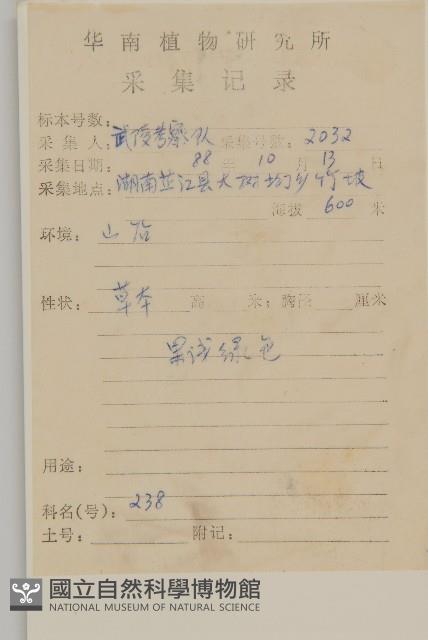 华南植物研究所
采集记录
标本号数:
采集人: 武陵考察队 采集号数: 2032
采集日期: 88 年 10 月 13 日
采集地点: 湖南芷江县大树坳乡竹坡
海拔 600 米
环境: 山谷
性状: 草本 高 米; 胸径 厘米
果浅绿色
用途:
科名(号): 238
土号: 附记:
國立自然科學博物館
NATIONAL MUSEUM OF NATURAL SCIENCE